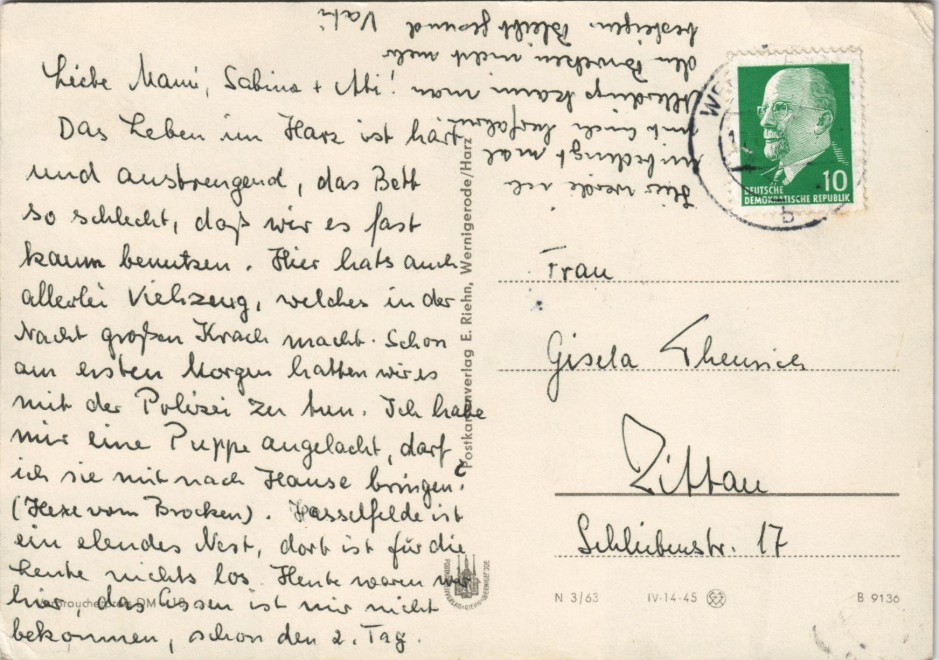 Liebe Mami, Sabina + Abi!
Das Leben im Harz ist hart
und anstrengend, das Bett
so schlecht, daß wir es fast
kaum benutzen. Hier hats auch
allerlei Viehzeug, welches in der
Nacht großen Krach macht. Schon
am ersten Morgen hatten wir es
mit der Polizei zu tun. Ich habe
mir eine Puppe angelacht, darf
ich sie mit nach Hause bringen?
(Hexe vom Brocken). Hasselfelde ist
ein elendes Nest, dort ist für die
Leute nichts los. Heute waren wir
hier, das Essen ist mir nicht
bekommen, schon den 2. Tag.
Hier werde ich
unbedingt mal
mit Euch herfahren
Allerdings kann man
den Brocken nicht mehr
besteigen. Bleibt gesund Vati
Postkartenverlag E. Riehn, Wernigerode/Harz
DEUTSCHE
DEMOKRATISCHE REPUBLIK
10
b
Frau
Gisela
Zittau
Schleibenstr. 17
N 3/63 IV-14-45 B 9136